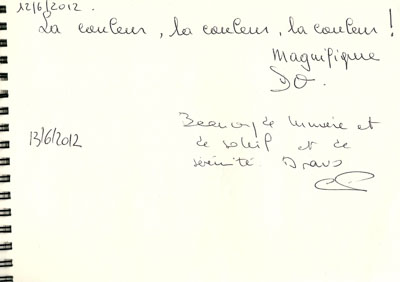 12/6/2012.
La couleur, la couleur, la couleur !
Magnifique
DO.
13/6/2012
Beaucoup de lumière et
de soleil et de
sérénité. Bravo